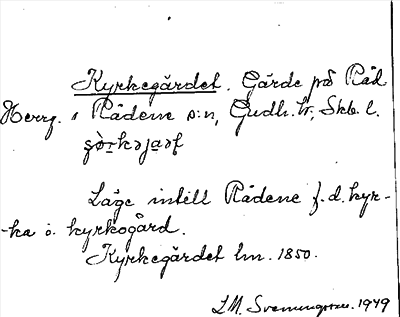 Kyrkegärdet. Gärde på Råd
Herrg. i Rådene s:n, Gudh. hr; Skb. l.

Läge intill Rådene f.d. kyr-
-ka o. kyrkogård.
Kyrkegärdet lm. 1850.
1949